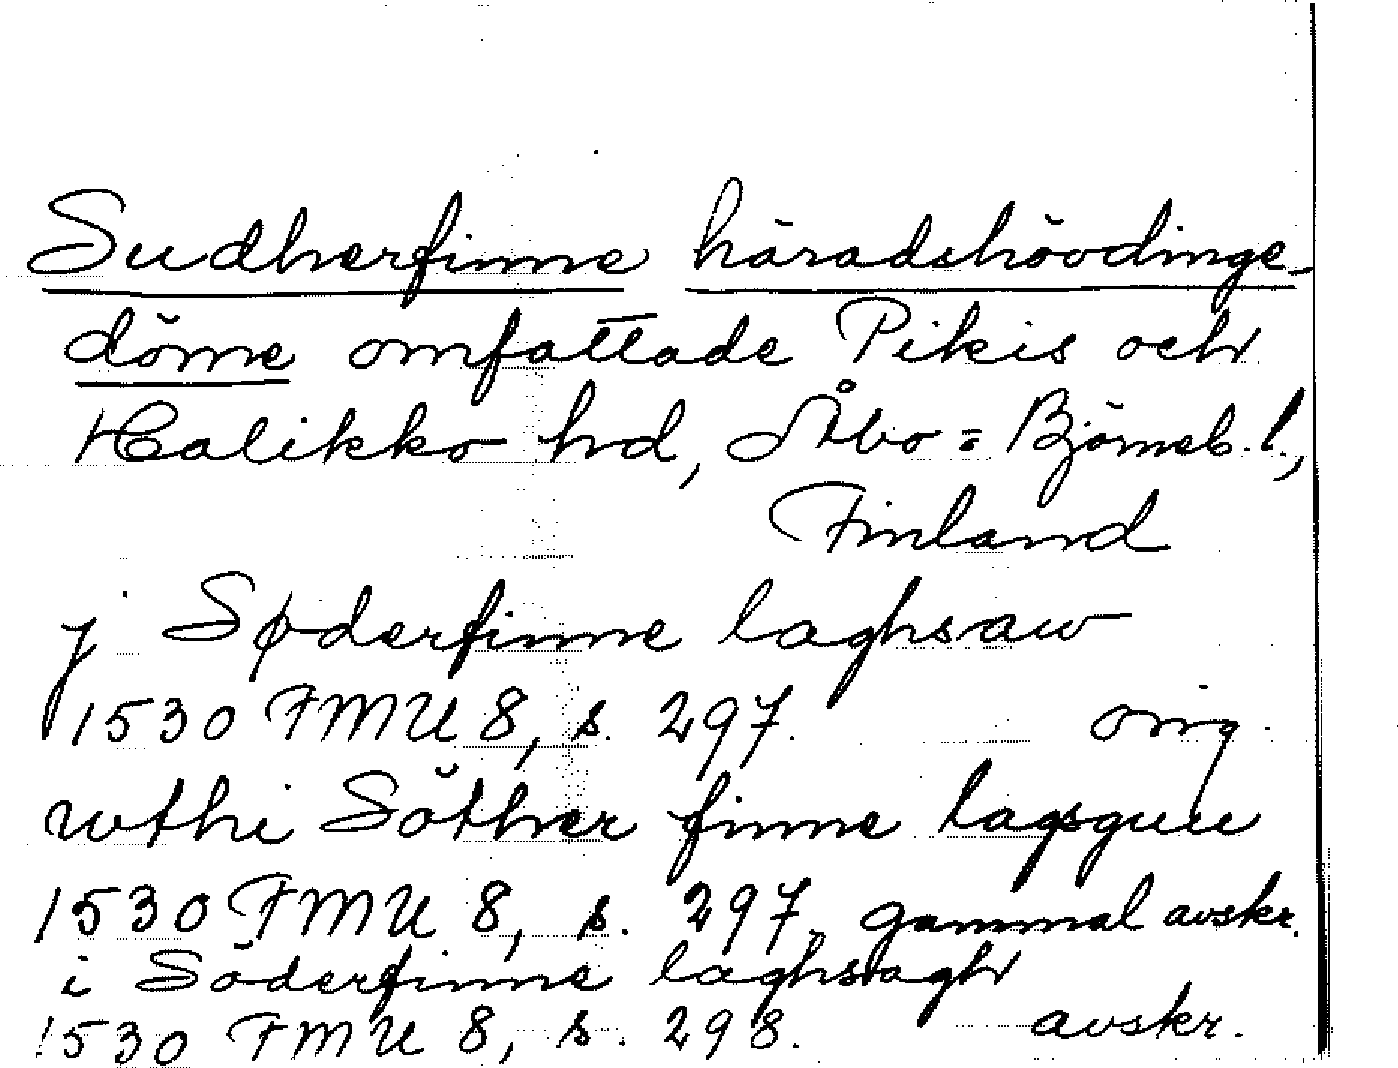 Sudherfinne häradshövdinge-
döme omfattade Pikis och
Halikko hd, Åbo = Björneb. l.,
Finland
j Søderfinne laghsaw
1530 FMU 8, s. 297. orig.
wthi Söther finne lagsguu
1530 FMU 8, s. 297, gammal avskr.
i Söderfinne laghsaghr
1530 FMU 8, s. 298. avskr.